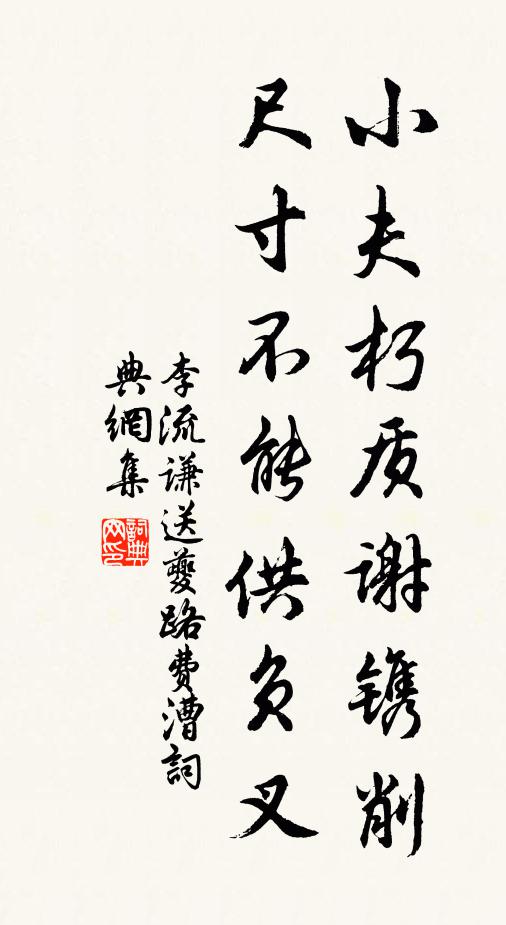 小夫朽质谢镌削
尺寸不能供负叉
李流谦送夔路费漕詞
典網集
詞典网印